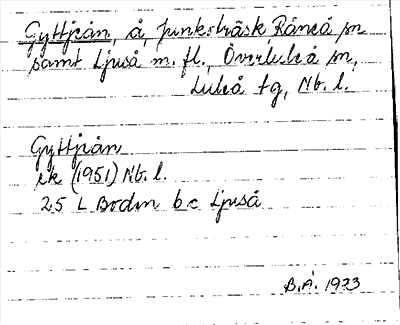 Gyttjeån, å, Junkersträsk Råneå sn
samt Ljuså m. fl., Överluleå sn,
Luleå tg, Nb. l.
Gyttjeån
ek (1951) Nb. l.
25 L Boden b c Ljuså
B.Å. 1973